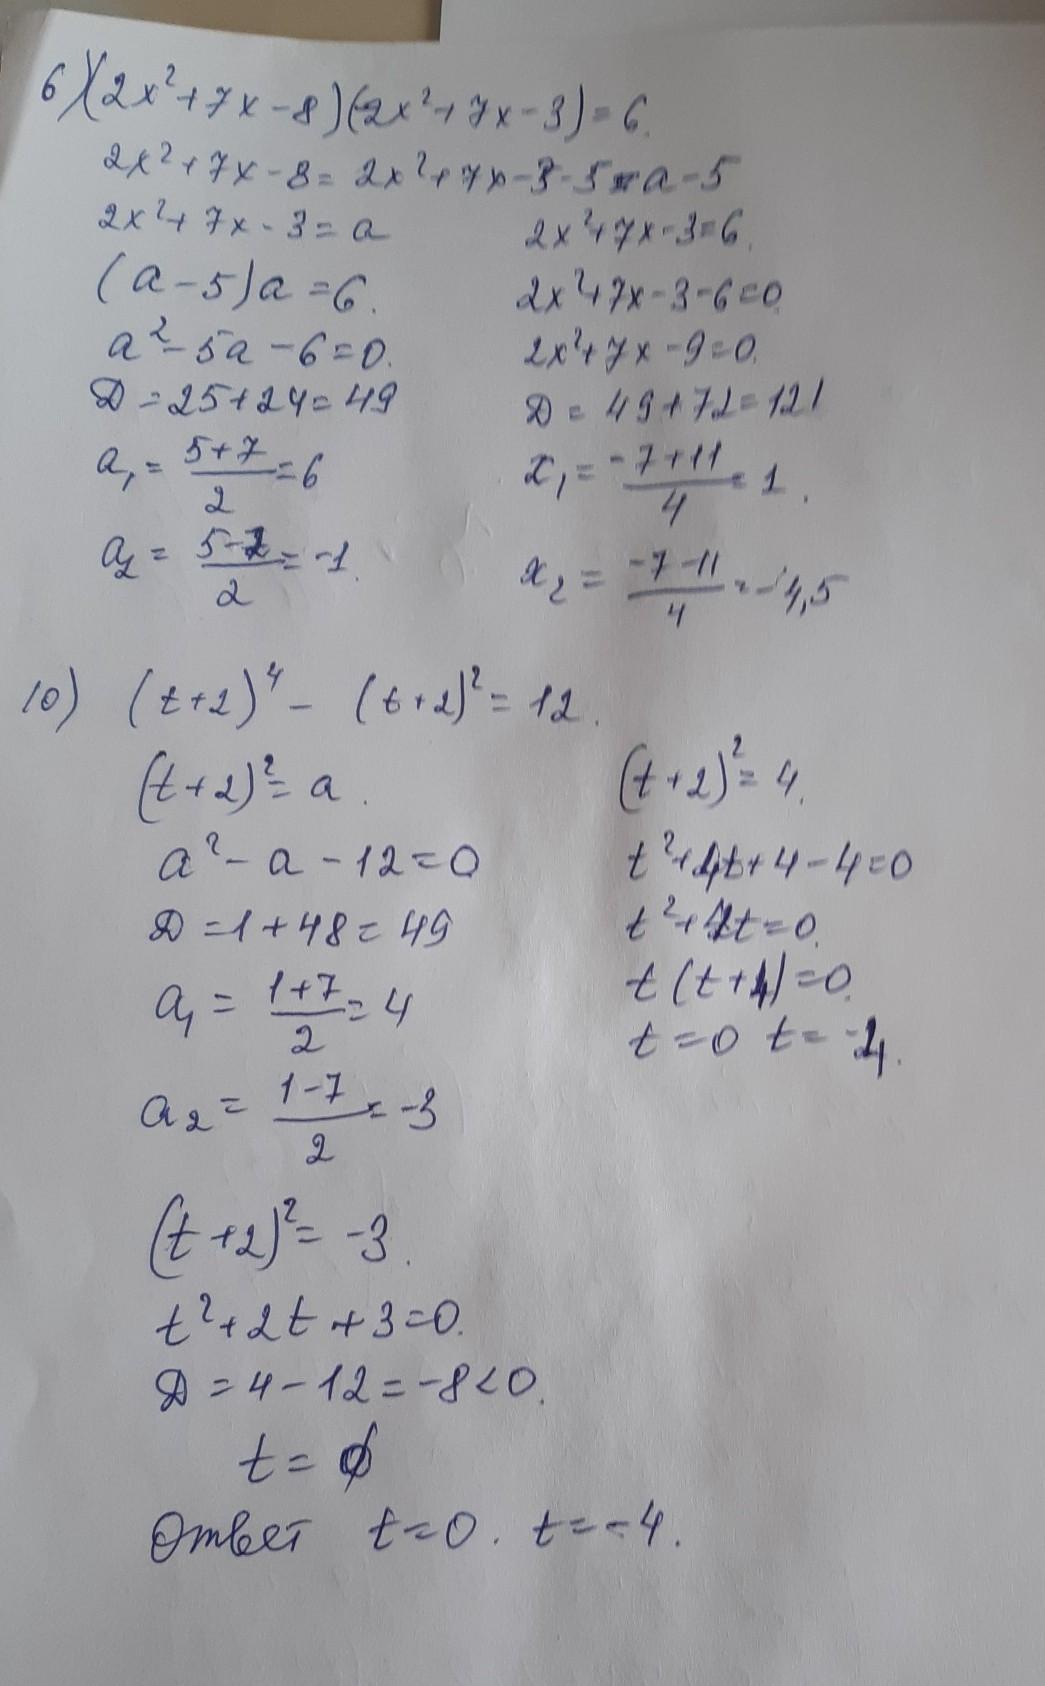 6) (2x²+7x-8)(2x²+7x-3)=6.
2x²+7x-8= 2x²+7x-3-5=a-5
2x²+7x-3=a
(a-5)a=6.
a²-5a-6=0.
D=25+24=49
a₁= (5+7)/2 =6
a₂= (5-7)/2 =-1.
2x²+7x-3=6.
2x²+7x-3-6=0.
2x²+7x-9=0.
D= 49+72=121
x₁= (-7+11)/4 =1.
x₂= (-7-11)/4 =-4,5
10) (t+2)⁴- (t+2)²=12.
(t+2)²=a.
a²-a-12=0
D=1+48=49
a₁= (1+7)/2 =4
a₂= (1-7)/2 =-3
(t+2)²=4.
t²+4t+4-4=0
t²+4t=0.
t(t+4)=0.
t=0 t=-4.
(t+2)²=-3.
t²+2t+3=0.
D=4-12=-8<0.
t=∅
Ответ t=0. t=-4.